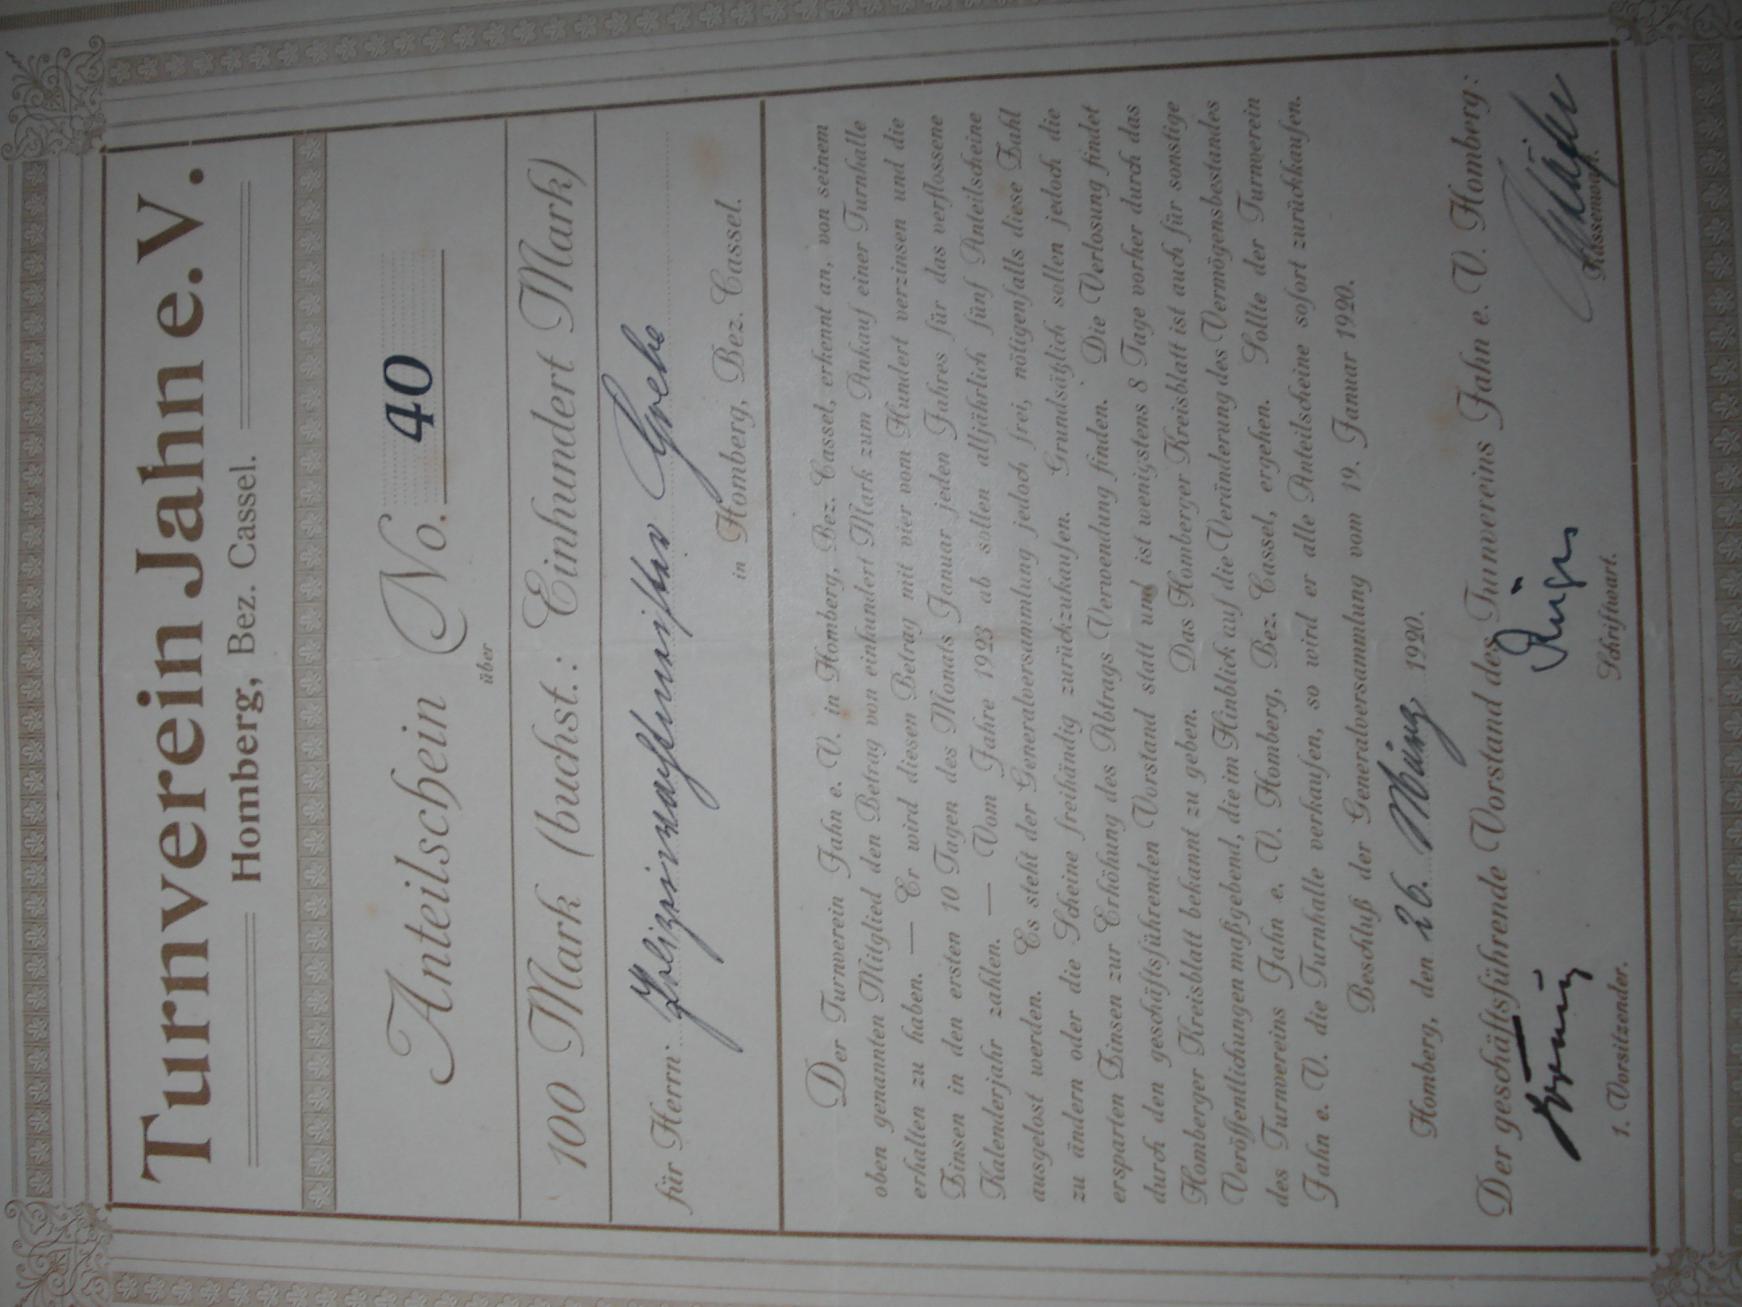 Turnverein Jahn e.V.
Homberg, Bez. Cassel.
Anteilschein No. 40
über
100 Mark (buchst.: Einhundert Mark)
für Herrn Polizeiwachtmeister Grebe
in Homberg, Bez. Cassel.
Der Turnverein Jahn e. V. in Homberg, Bez. Cassel, erkennt an, von seinem
oben genannten Mitglied den Betrag von einhundert Mark zum Ankauf einer Turnhalle
erhalten zu haben. — Er wird diesen Betrag mit vier vom Hundert verzinsen und die
Zinsen in den ersten 10 Tagen des Monats Januar jeden Jahres für das verflossene
Kalenderjahr zahlen. — Vom Jahre 1923 ab sollen alljährlich fünf Anteilscheine
ausgelost werden. Es steht der Generalversammlung jedoch frei, nötigenfalls diese Zahl
zu ändern oder die Scheine freihändig zurückzukaufen. Grundsätzlich sollen jedoch die
ersparten Zinsen zur Erhöhung des Abtrags Verwendung finden. Die Verlosung findet
durch den geschäftsführenden Vorstand statt und ist wenigstens 8 Tage vorher durch das
Homberger Kreisblatt bekannt zu geben. Das Homberger Kreisblatt ist auch für sonstige
Veröffentlichungen maßgebend, die im Hinblick auf die Veränderung des Vermögensbestandes
des Turnvereins Jahn e. V. Homberg, Bez. Cassel, ergehen. Sollte der Turnverein
Jahn e. V. die Turnhalle verkaufen, so wird er alle Anteilscheine sofort zurückkaufen.
Beschluß der Generalversammlung vom 19. Januar 1920.
Homberg, den 26. März 1920.
Der geschäftsführende Vorstand des Turnvereins Jahn e. V. Homberg:
1. Vorsitzender. Schriftwart. Kassenwart.